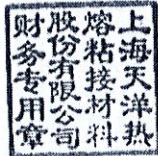 上海天洋热
熔粘接材料
股份有限公司
财务专用章